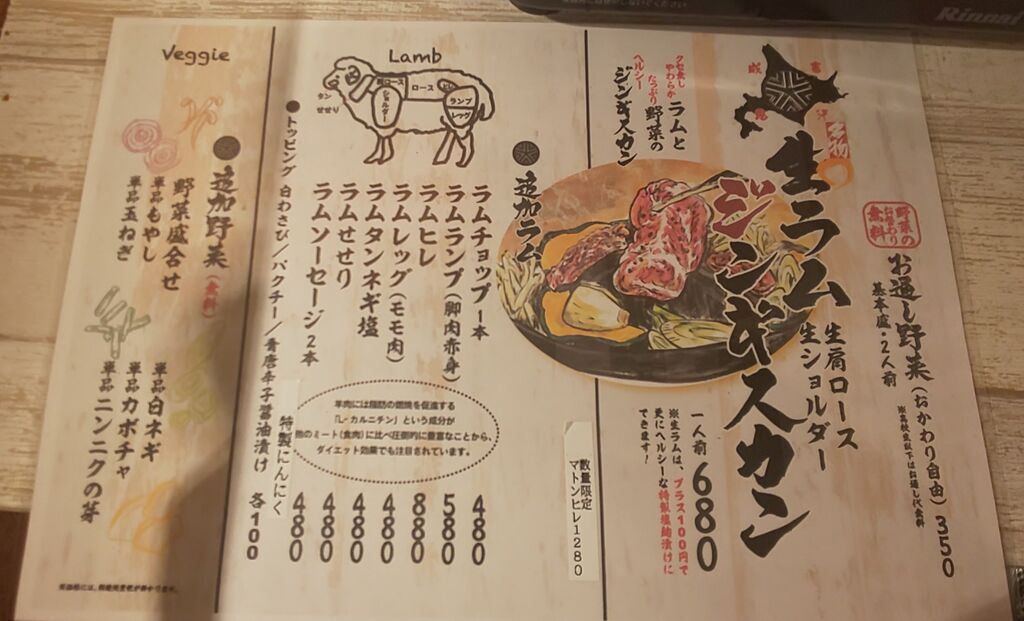 Rinnai
生ラム
ジンギスカン
名物
クセ無し
やわらか
ラムと
たっぷり
野菜の
ヘルシー
ジンギスカン
野菜の
おかわり
無料
お通し野菜（おかわり自由）350
基本盛・2人前
※高校生以下はお通し代無料
生肩ロース
生ショルダー
一人前 680
※生ラムは、プラス100円で
更にヘルシーな特製塩麹漬けに
できます！
数量限定
マトンヒレ1280
Lamb
肩ロース
ロース
ショルダー
ランプ
レッグ
タン
せせり
追加ラム
ラムチョップ1本 480
ラムランプ（脚肉赤身） 580
ラムヒレ 880
ラムレッグ（モモ肉） 480
ラムタンネギ塩 480
ラムせせり 480
ラムソーセージ2本 480
羊肉には脂肪の燃焼を促進する
「L-カルニチン」という成分が
他のミート(食肉)に比べ圧倒的に豊富なことから、
ダイエット効果でも注目されています。
●トッピング 白わさび／パクチー／青唐辛子醤油漬け
特製にんにく 各100
Veggie
追加野菜（無料）
野菜盛合せ
単品もやし
単品玉ねぎ
単品白ネギ
単品カボチャ
単品ニンニクの芽